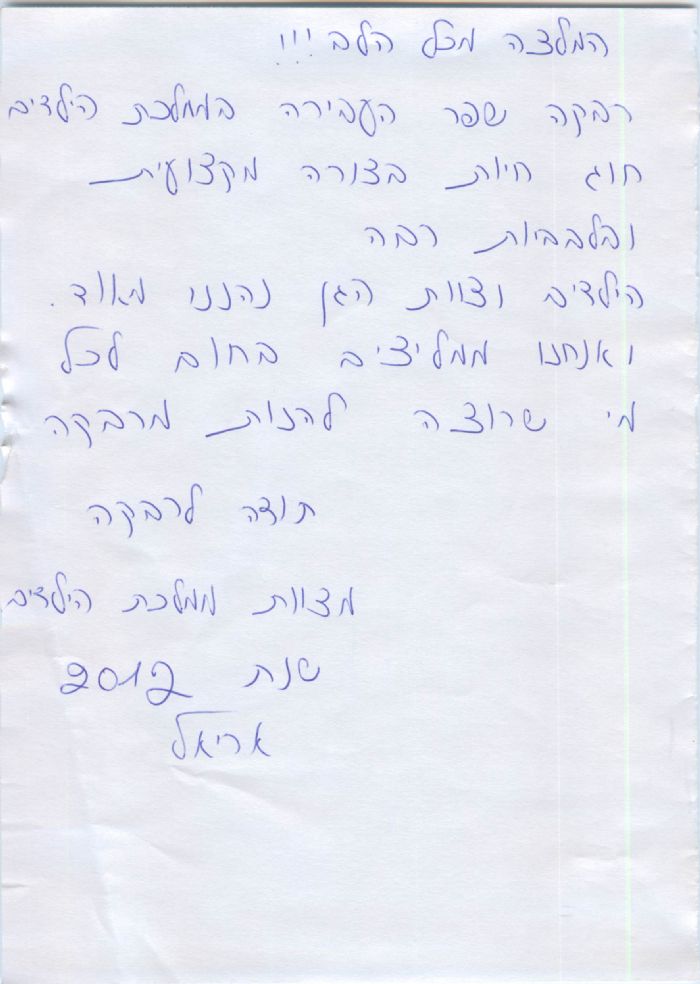 המלצה מכל הלב!!!
רבקה שפר העבירה בממלכת הילדים
חוג חיות בצורה מקצועית
ובלבביות רבה
הילדים וצוות הגן נהננו מאוד.
ואנחנו ממליצים בחום לכל
מי שרוצה להנות מרבקה
תודה לרבקה
מצוות ממלכת הילדים
שנת 2012
אריאל